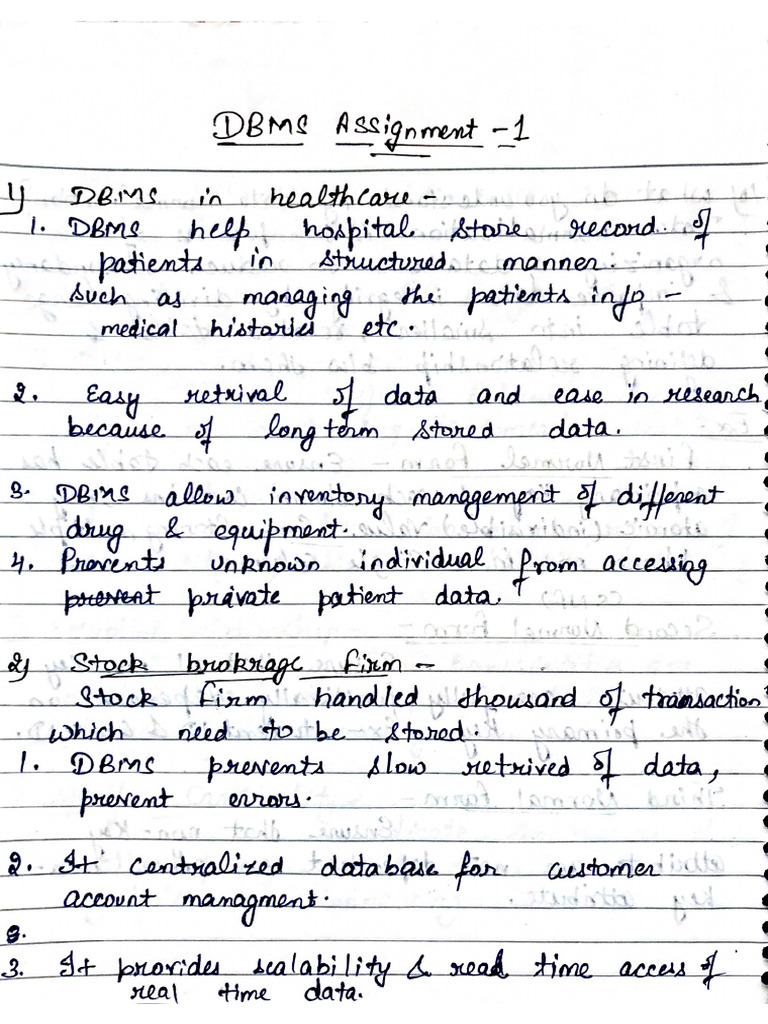 DBMS Assignment - 1
1) DBMS in healthcare -
1. DBMS help hospital store record of
patients in structured manner.
such as managing the patients info -
medical histories etc.
2. Easy retrival of data and ease in research
because of long term stored data.
3. DBMS allow inventory management of different
drug & equipment.
4. Prevents unknown individual from accessing
prevent private patient data.
2) Stock brokrage firm -
Stock firm handled thousand of transaction
which need to be stored:
1. DBMS prevents slow retrived of data,
prevent errors.
2. It centralized database for customer
account managment.
3.
3. It provides scalability & read time access of
real time data.